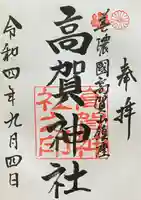 奉拝
美濃國高賀山鎮座
高賀神社
令和四年九月四日